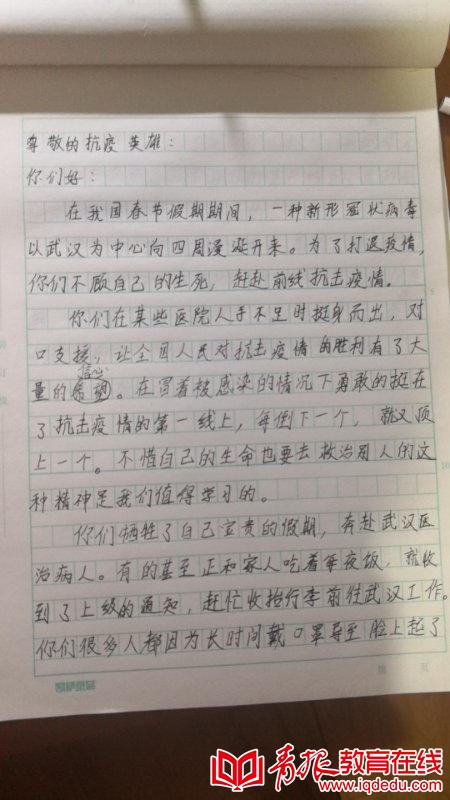 尊敬的抗疫英雄：
你们好：
在我国春节假期期间，一种新形冠状病毒
以武汉为中心向四周漫涎开来。为了打退疫情，
你们不顾自己的生死，赶赴前线抗击疫情。
你们在某些医院人手不足时挺身而出，对
口支援，让全国人民对抗击疫情的胜利有了大
信心
量的希望。在冒着被感染的情况下勇敢的挺在
了抗击疫情的第一线上，每倒下一个，就又顶
上一个。不惜自己的生命也要去救治别人的这
种精神是我们值得学习的。
你们牺牲了自己宝贵的假期，奔赴武汉医
治病人。有的甚至正和家人吃着年夜饭，就收
到了上级的通知，赶忙收拾行李前往武汉工作。
你们很多人都因为长时间戴口罩导至脸上起了
青报教育在线
www.iqdedu.com